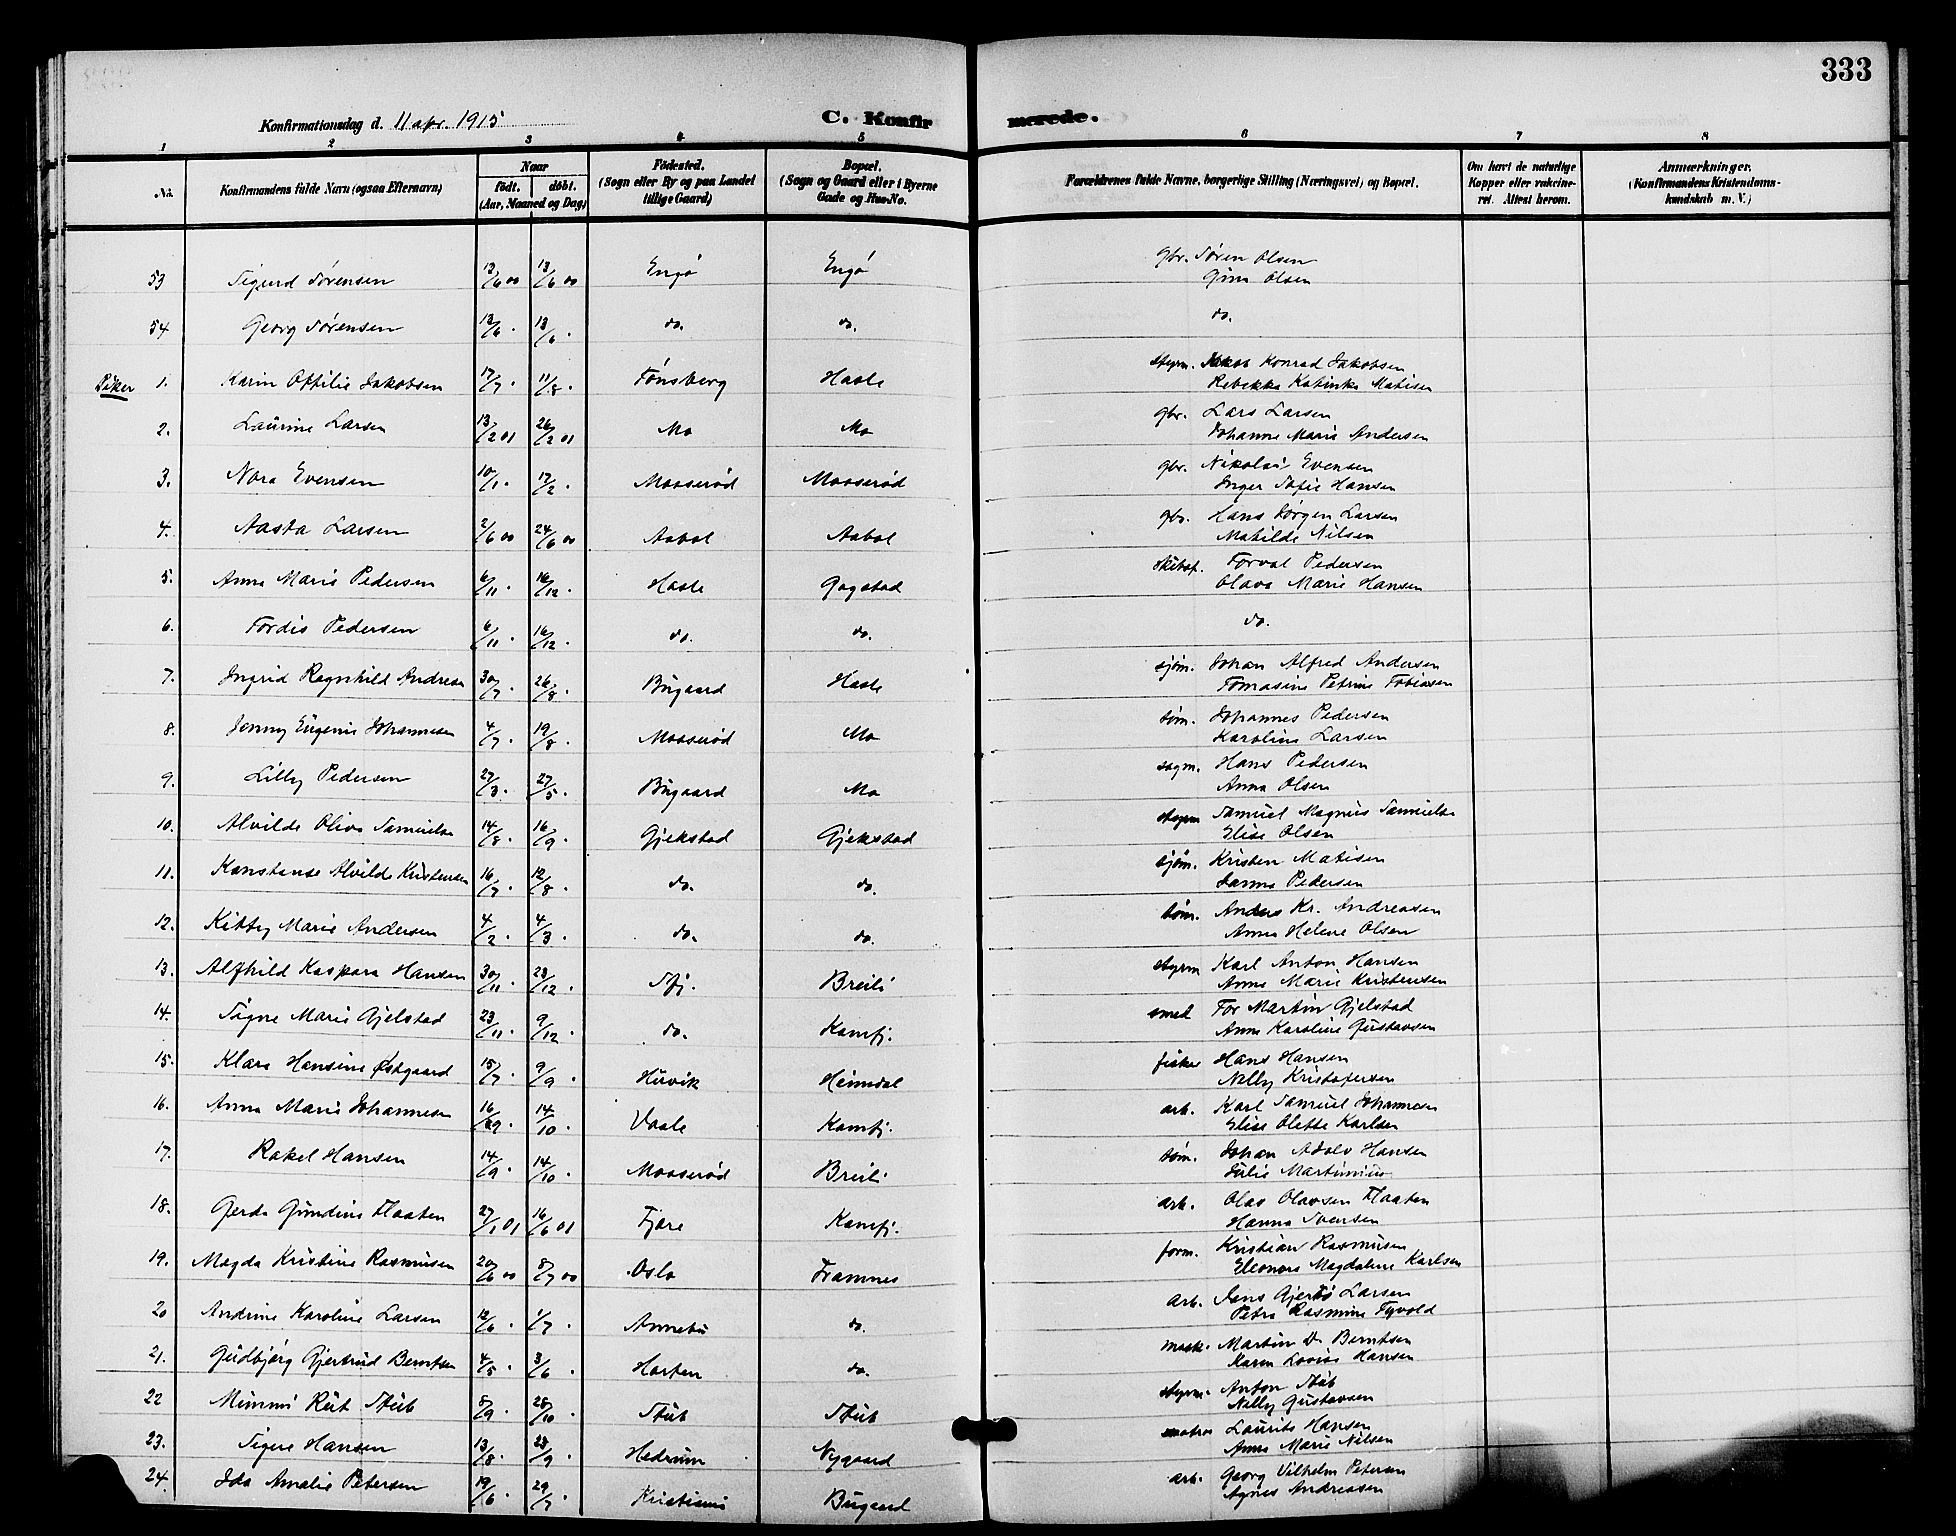 333
Konfirmationsdag d. 11 apr. 1915
C. Konfirmerede.
1 2 3 4 5 6 7 8
No.
Konfirmandens fulde Navn (ogsaa Efternavn)
Naar
født. døbt.
(Aar, Maaned og Dag)
Fødested.
(Sogn eller By og paa Landet
tillige Gaard)
Bopæl.
(Sogn og Gaard eller i Byerne
Gade og Hus-No.
Forældrenes fulde Navne, borgerlige Stilling (Næringsvei) og Bopæl.
Om havt de naturlige
Kopper eller vakcine-
ret. Attest herom.
Anmærkninger.
(Konfirmandens Kristendoms-
kundskab m. V.)
53 Sigurd Sørensen 13/6 00 13/6 00 Engø Engø gbr. Søren Olsen
Gina Olsen
54 Georg Sørensen 13/6 . 13/6 . do. do. do.
Piker 1. Karin Ottilie Jakobsen 17/7 . 11/8 . Tønsberg Hasle styrm. Jakob Konrad Jakobsen
Rebekka Katinka Matisen
2. Laurine Larsen 13/2 01 26/2 01 Mo Mo gbr. Lars Larsen
Johanne Marie Andersen
3. Nora Evensen 10/1 . 17/2 . Moaserød Moaserød gbr. Nikolai Evensen
Inger Sofie Hansen
4. Aasta Larsen 2/6 00 24/6 00 Aabol Aabol gbr. Hans Jørgen Larsen
Matilde Nilsen
5. Anna Marie Pedersen 6/11 . 16/12 . Hasle Gogstad skibsf. Torval Pedersen
Olava Marie Hansen
6. Tordis Pedersen 6/11 . 16/12 . do. do. do.
7. Ingrid Ragnhild Andresen 30/7 . 26/8 . Bugaard Hasle sjøm. Johan Alfred Andersen
Tomasine Petrine Tobiasen
8. Jenny Eugenie Johannesen 4/7 . 19/8 . Moaserød Mo tøm. Johannes Pedersen
Karoline Larsen
9. Lilly Pedersen 27/3 . 27/5 . Bugaard Mo sagm. Hans Pedersen
Anna Olsen
10. Alvilde Oliva Samuelse 14/8 . 16/9 . Gjekstad Gjekstad styrm Samuel Magnus Samuelse
Elise Olsen
11. Konstanse Alvilde Kristensen 16/7 . 12/8 . do. do. sjøm. Kristen Matisen
Janna Pedersen
12. Kitty Marie Andersen 4/2 . 4/3 . do. do. tøm. Anders Kr. Andreasen
Anna Helene Olsen
13. Alfhild Kaspara Hansen 30/11 . 23/12 . Sfj. Breili styrm Karl Anton Hansen
Anna Marie Kristensen
14. Signe Marie Gjelstad 23/11 . 9/12 . do. Kamfj. smed Tor Martin Gjelstad
Anna Karoline Gustavsen
15. Klara Hansine Østgaard 15/7 . 9/9 . Huvik Heimdal fisker Hans Hansen
Nelly Kristofersen
16. Anna Marie Johannesen 16/9 . 14/10 . Vaale Kamfj. arb. Karl Samuel Johannesen
Elise Olette Karlsen
17. Rakel Hansen 14/9 . 14/10 . Moaserød Breili tøm. Johan Adolv Hansen
Julie Martinius
18. Gerda Gundine Flaaten 27/1 01 16/6 01 Tjøre Kamfj. arb. Olav Olavsen Flaaten
Hanna Svensen
19. Magda Kristine Rasmusen 20/6 00 8/7 00 Oslo Framnes form. Kristian Rasmusen
Eleonora Magdalene Karlsen
20 Andrine Karoline Larsen 12/6 . 1/7 . Annebu do. arb. Jens Gjertø Larsen
Petra Rasmine Tyvold
21. Gudbjørg Gjertrud Berntsen 4/5 . 3/6 . Horten do. mask. Martin D. Berntsen
Karen Lovise Hansen
22 Mimmi Rut Stub 8/9 . 28/10 . Stub Stub styrm. Anton Stub
Nelly Gustavsen
23. Sigve Hansen 13/8 . 23/9 . Hedrum Nygaard matros Laurits Hansen
Anna Marie Nilsen
24. Ida Amalie Petersen 19/6 . 29/7 . Kristiania Bugaard arb. Georg Vilhelm Petersen
Agnes Andreasen